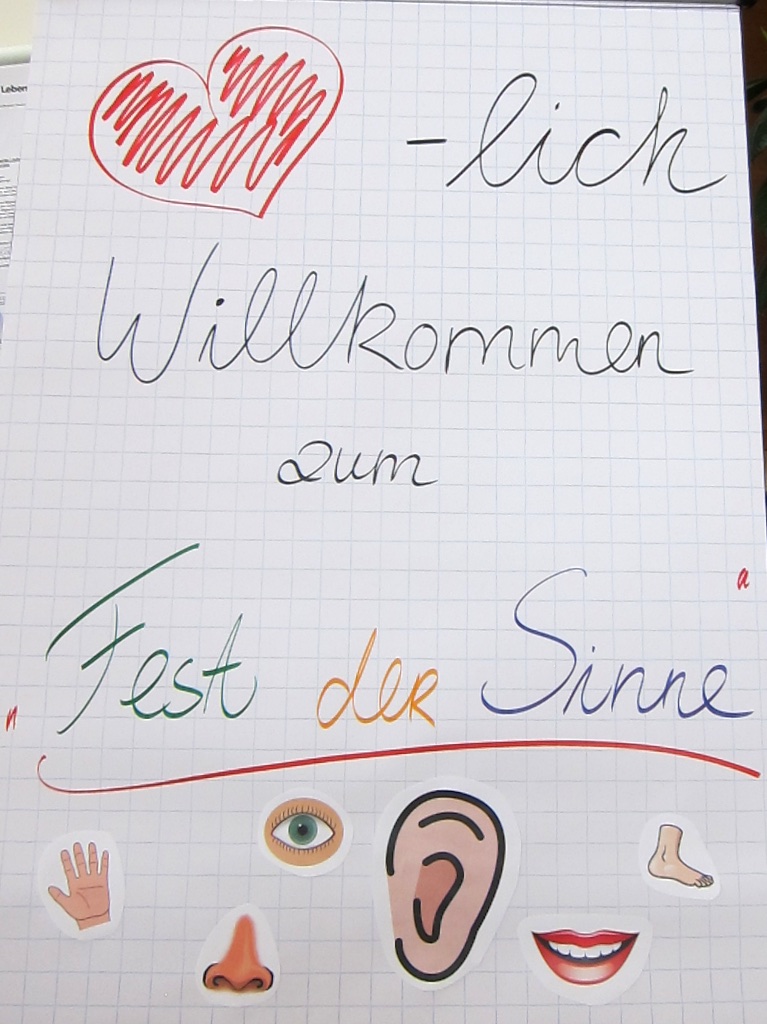 Leben
-lich
Willkommen
zum
Fest der Sinne